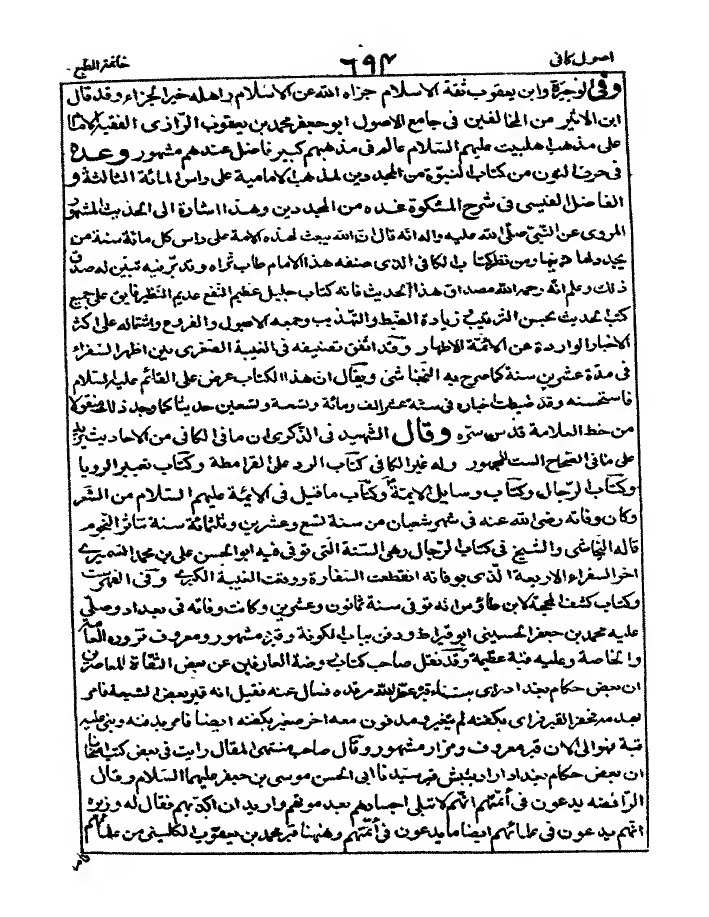 اصول كافى ٦٩٤ خاتمة الطبع
وفى الوجيزة وابن يعقوب ثقة الاسلام جزاه الله عن الاسلام واهله خير الجزاء وقد قال
ابن الاثير من المخالفين فى جامع الاصول ابو جعفر محمد بن يعقوب الرازى الفقيه الامام
على مذهب اهلبيت عليهم السلام عالم فى مذهبهم كبير فاضل عندهم مشهور وعده
فى حرف النون من كتاب النبوة من المجددين لمذهب الامامية على راس المائة الثالثة و
الفاضل الفيسى فى شرح المشكوة عده من المجددين وهذا اشارة الى الحديث المشهور
المروى عن النبى صلى الله عليه واله انه قال ان الله يبعث لهذه الامة على راس كل مائة سنة من
يجدد لها دينها ومن نظر كتاب الكافى الذى صنفه هذا الامام طاب ثراه وتدبر فيه تبين له صدق
ذلك وعلم انه رحمه الله مصداق هذا الحديث فانه كتاب جليل عظيم النفع عديم النظير فايق على جميع
كتب الحديث بحسن الترتيب وزيادة الضبط والتهذيب وجمعه الاصول والفروع واشتماله على اكثر
الاخبار الواردة عن الائمة الاطهار وقد اتفق تصنيفه فى الغيبة الصغرى بين اظهر السفراء
فى مدة عشرين سنة كما صرح به النجاشى ويقال ان هذا الكتاب عرض على القائم عليه السلام
فاستحسنه وقد ضبطت اخباره فى ستة عشر الف ومائة وتسعة وتسعين حديثا كما وجد ذلك منقولا
من خط العلامة قدس سره وقال الشهيد فى الذكرى ان ما فى الكافى من الاحاديث يزيد
على ما فى الصحاح الست للجمهور وله غير الكافى كتاب الرد على القرامطة وكتاب تعبير الرويا
وكتاب الرجال وكتاب رسايل الايمة وكتاب ما قيل فى الايمة عليهم السلام من الشعر
وكان وفاته رضى الله عنه فى شهر شعبان من سنة تسع وعشرين وثلثمائة سنة تناثر النجوم
قاله النجاشى والشيخ فى كتاب الرجال وهى السنة التى توفى فيه ابو الحسن على بن محمد السميرى
اخر السفراء الاربعة الذى بوفاته انقطعت السفارة ووقعت الغيبة الكبرى وفى الفهرست
وكتاب كشف المحجة لابن طاوس انه توفى سنة ثمانون وعشرين وكانت وفاته فى بغداد وصلى
عليه محمد بن جعفر الحسينى ابو قيراط ودفن بباب الكوفة وقبره مشهور ومعروف تزوره العامة
والخاصة وعليه قبة عظيمة وقد نقل صاحب كتاب روضة العارفين عن بعض الثقاة المعاصرين
ان بعض حكام بغداد راى بناء قبر عطر الله مرقده فسال عنه فقيل انه قبر بعض الشيعة فامر
بهدمه فحفر القبر فراى بكفنه لم يتغير ومدفون معه اخر صغير بكفنه ايضا فامر بدفنه وبنى عليه
قبة فهو الى الان قبر معروف ومزار مشهور وقال صاحب منتهى المقال رايت فى بعض كتب اصحابنا
ان بعض حكام بغداد اراد نبش قبر سيدنا ابى الحسن موسى بن جعفر عليهما السلام وقال
الرافضة يدعون فى ائمتهم انهم لا تبلى اجسادهم بعد موتهم واريد ان اكذبهم فقال له وزيره
انهم يدعون فى علمائهم ايضا ما يدعون فى ائمتهم وههنا قبر محمد بن يعقوب الكلينى من علمائهم